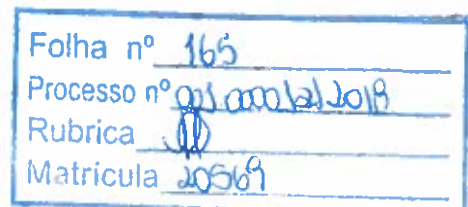 Folha nº 165
Processo nº 001.000121/2018
Rubrica
Matrícula 20569